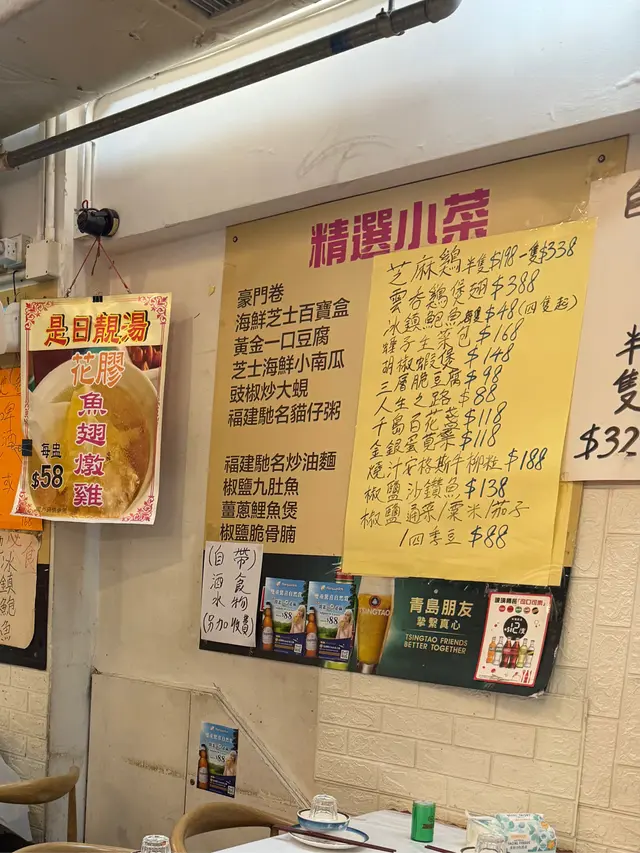 是日靚湯
花膠
魚
翅
燉
雞
每盅
$58
精選小菜
豪門卷
海鮮芝士百寶盒
黃金一口豆腐
芝士海鮮小南瓜
豉椒炒大蜆
福建馳名貓仔粥
福建馳名炒油麵
椒鹽九肚魚
薑蔥鯉魚煲
椒鹽脆骨腩
芝麻鷄半隻$198一隻$338
雲吞鷄煲翅$388
冰鎮鮑魚每隻$48(四隻起)
生菜包$168
胡椒蝦煲$148
三層脆豆腐$98
人生之路$88
千島百花茄$118
金銀蛋莧菜$118
燒汁安格斯牛柳粒$188
椒鹽沙鑽魚$138
椒鹽 通菜/粟米/茄子
/四季豆 $88
(自帶)
酒食
水物
(另加收費)
$88
$88
TSINGTAO
青島朋友
摯繫真心
TSINGTAO FRIENDS
BETTER TOGETHER
$12
$88
半
隻
$32
冰
鎮
鮑
魚